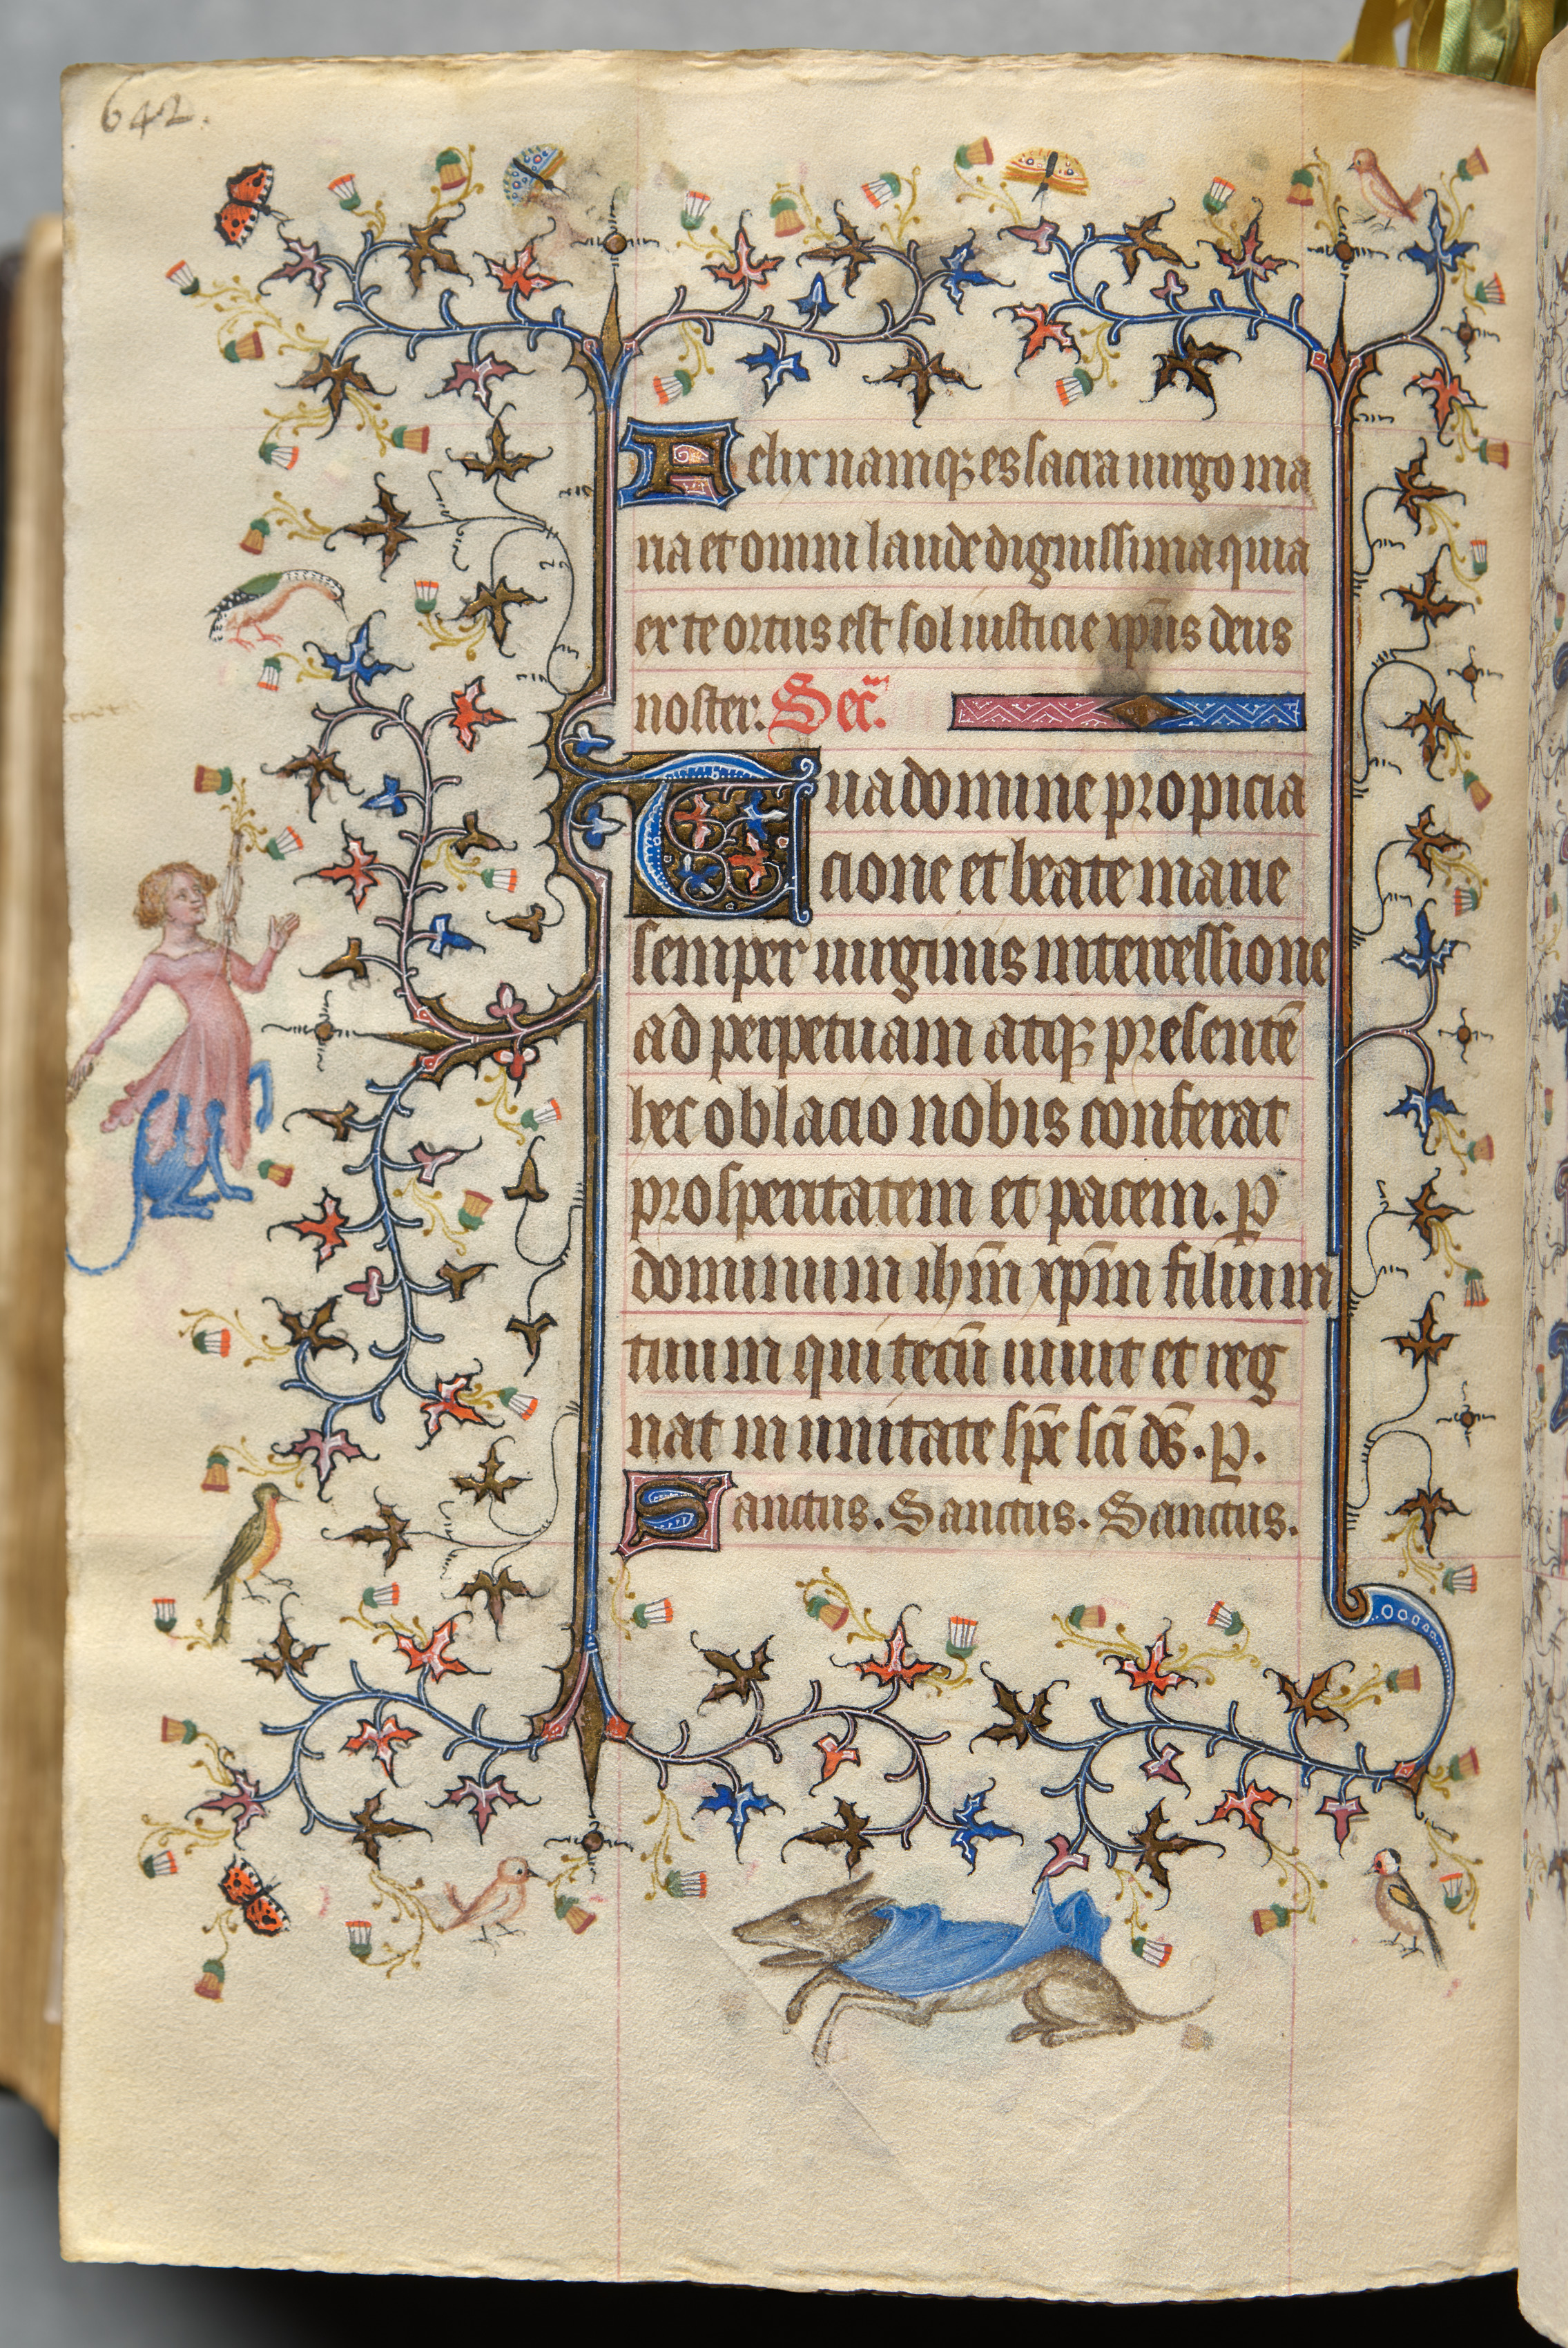 642.
Felix namqꝫ es sacra uirgo ma
ria et omni laude dignissima quia
ex te ortus est sol iusticie xp̄us deus
noster. Sec̄.
Tua domine propicia
cione et beate marie
semper uirginis intercessione
ad perpetuam atqꝫ presentē
hec oblacio nobis conferat
prosperitatem et pacem. P̄
dominum ih̄m xp̄m filium
tuum qui tecū uiuit et reg
nat in unitate sp̄c sc̄i ds̄. P.
Sanctus. Sanctus. Sanctus.